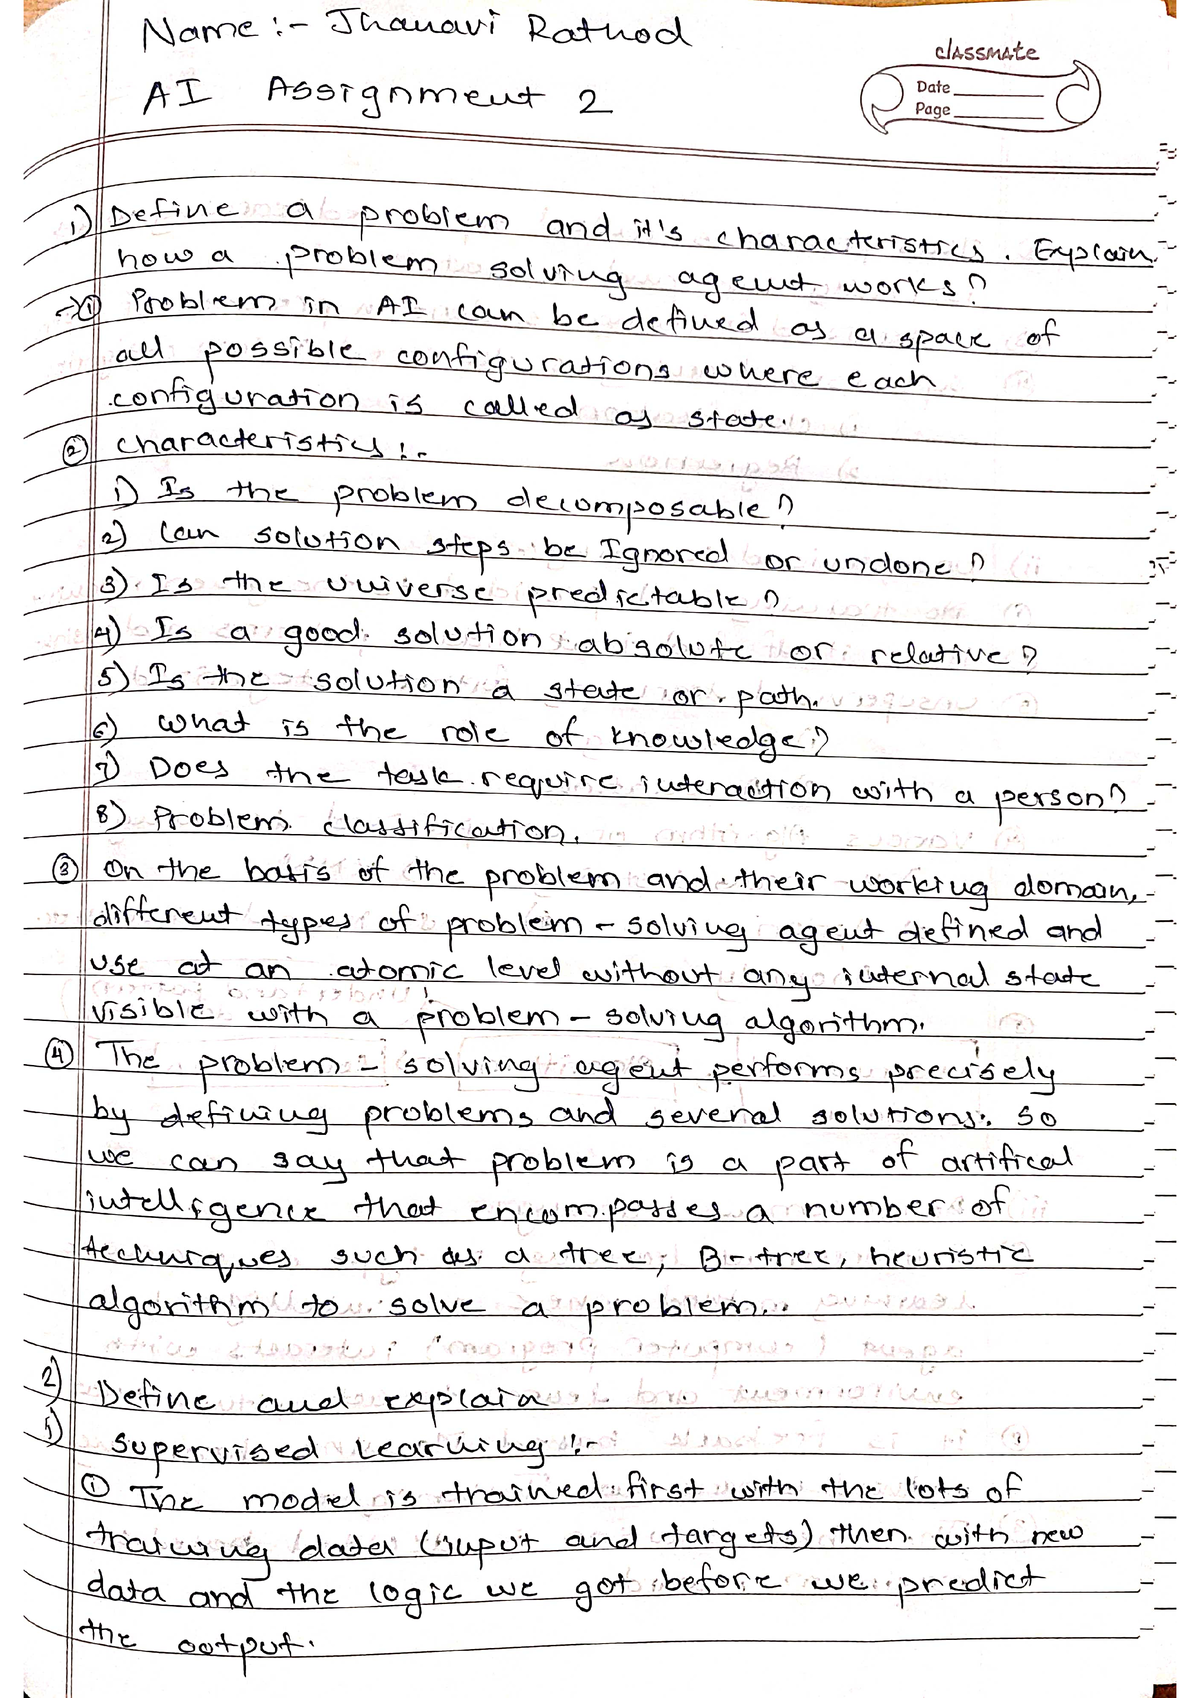 Name :- Jhanavi Rathod
classmate
Date
Page
AI Assignment 2
1) Define a problem and it's characteristics. Explain
how a problem solving agent works?
→① Problem in AI can be defined as a space of
all possible configurations where each
configuration is called as state.
② characteristics :-
1) Is the problem decomposable?
2) Can solution steps be Ignored or undone?
3) Is the universe predictable?
4) Is a good solution absolute or relative?
5) Is the solution a state or path.
6) What is the role of knowledge?
7) Does the task require interaction with a person?
8) Problem classification.
③ On the basis of the problem and their working domain,
different types of problem - solving agent defined and
use at an atomic level without any internal state
visible with a problem - solving algorithm.
④ The problem - solving agent performs precisely
by defining problems and several solutions. So
we can say that problem is a part of artifical
intelligence that encompasses a number of
techniques such as a tree, B-tree, heuristic
algorithm to solve a problem.
2) Define and explain
i) Supervised Learning :-
① The model is trained first with the lots of
training data (input and targets) then with new
data and the logic we got before we predict
the output.